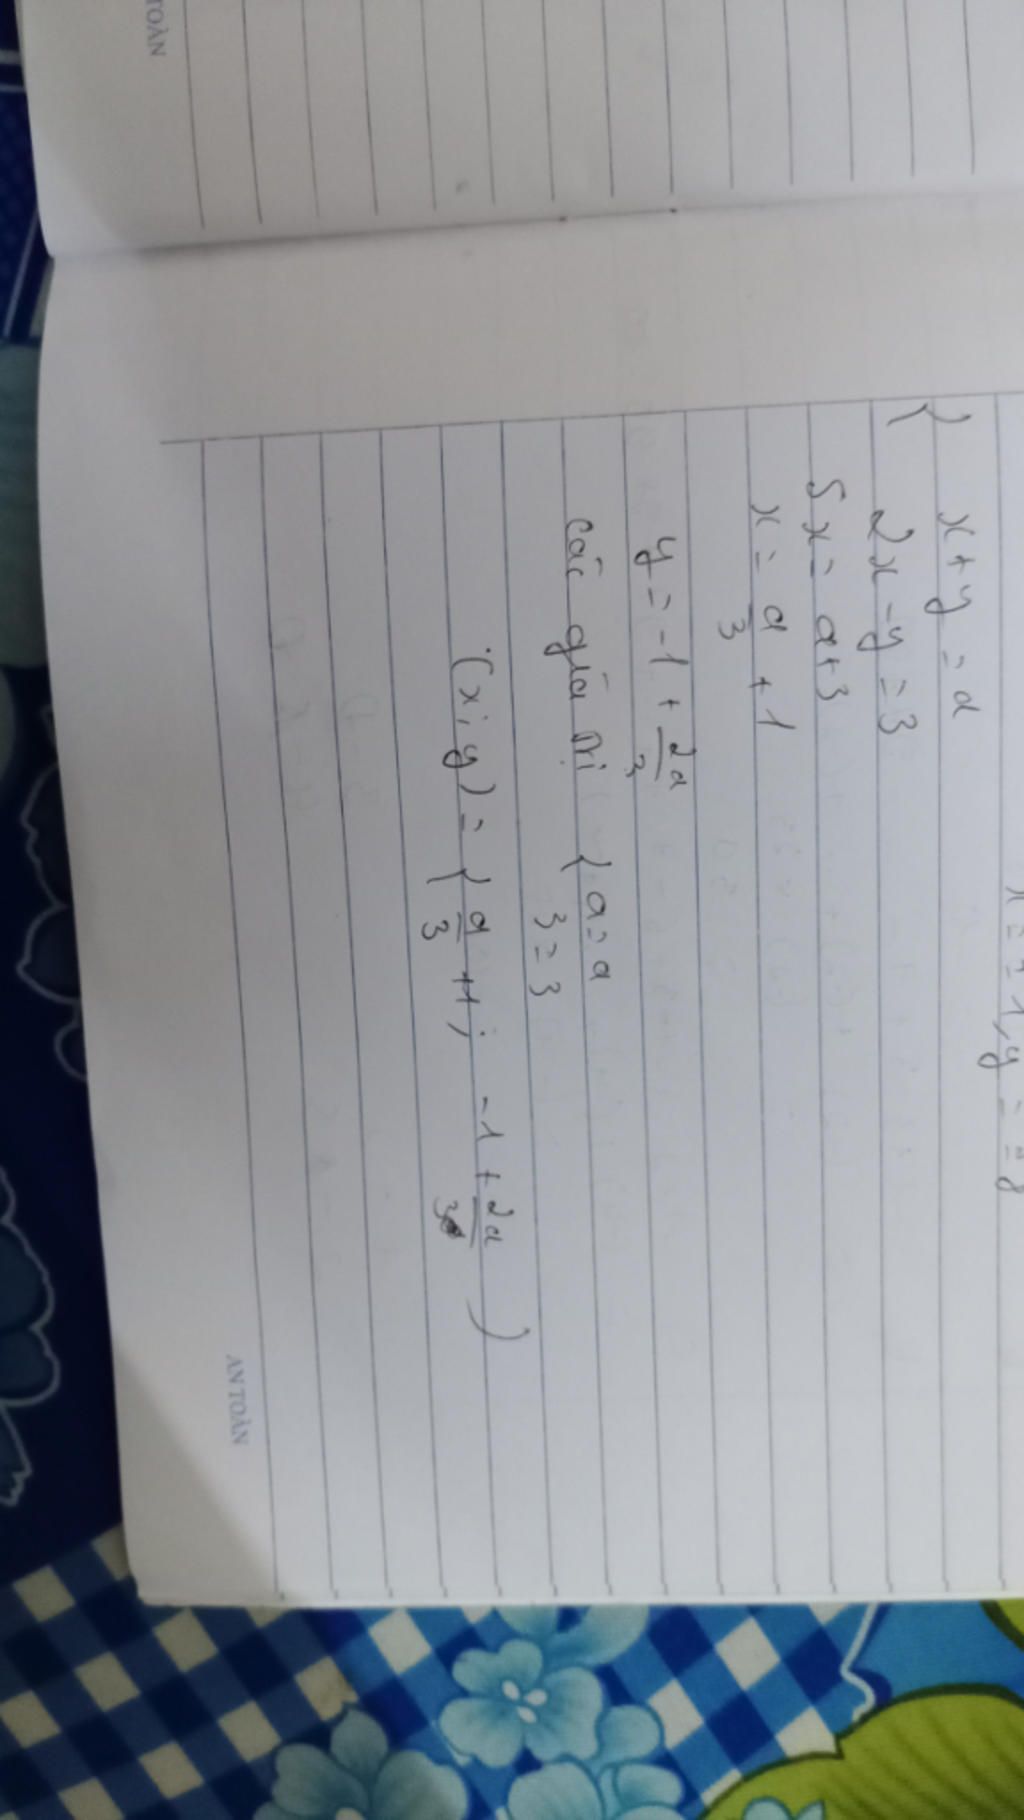 TOÀN
x = -1, y = = 8
x + y = a
2x - y = 3
5x = a+3
x = a/3 + 1
y = -1 + 2a/3
các giá trị { a = a
3 = 3
(x; y) = { a/3 +1; -1 + 2a/3 )
AN TOÀN